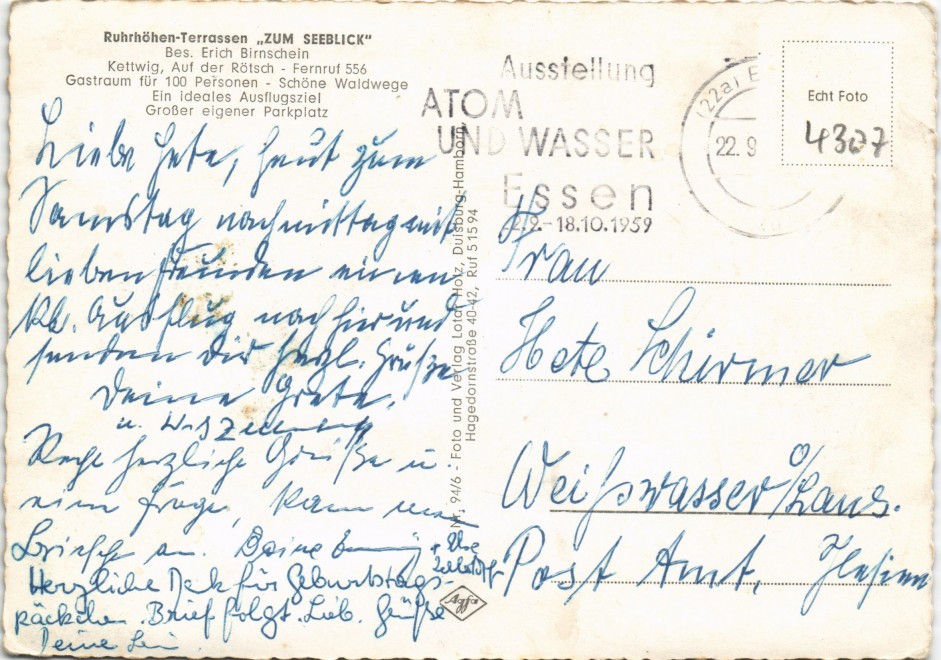 Ruhrhöhen-Terrassen „ZUM SEEBLICK"
Bes. Erich Birnschein
Kettwig, Auf der Rötsch - Fernruf 556
Gastraum für 100 Personen - Schöne Waldwege
Ein ideales Ausflugsziel
Großer eigener Parkplatz
Liebe Hete, heut zum
Samstag nachmittag mit
lieben Freunden einen
kl. Ausflug nach hier und
senden Dir herzl. Grüße
Deine Grete.
u.
Recht herzliche Grüße u.
eine Frage, kam mein
an.
+ Else
Herzliche Dank für Geburtstags-
päckchen. Brief folgt. Lieb. Grüße
Deine
Nr. 94/6 - Foto und Verlag Lotar Holz, Duisburg-Hamborn
Hagedornstraße 40-42, Ruf 51594
Agfa
Ausstellung
ATOM
UND WASSER
Essen
-18.10.1959
(22a) E
22. 9
Echt Foto
4307
Frau
Hete Schirmer
Weißwasser O/Laus.
Post Amt.